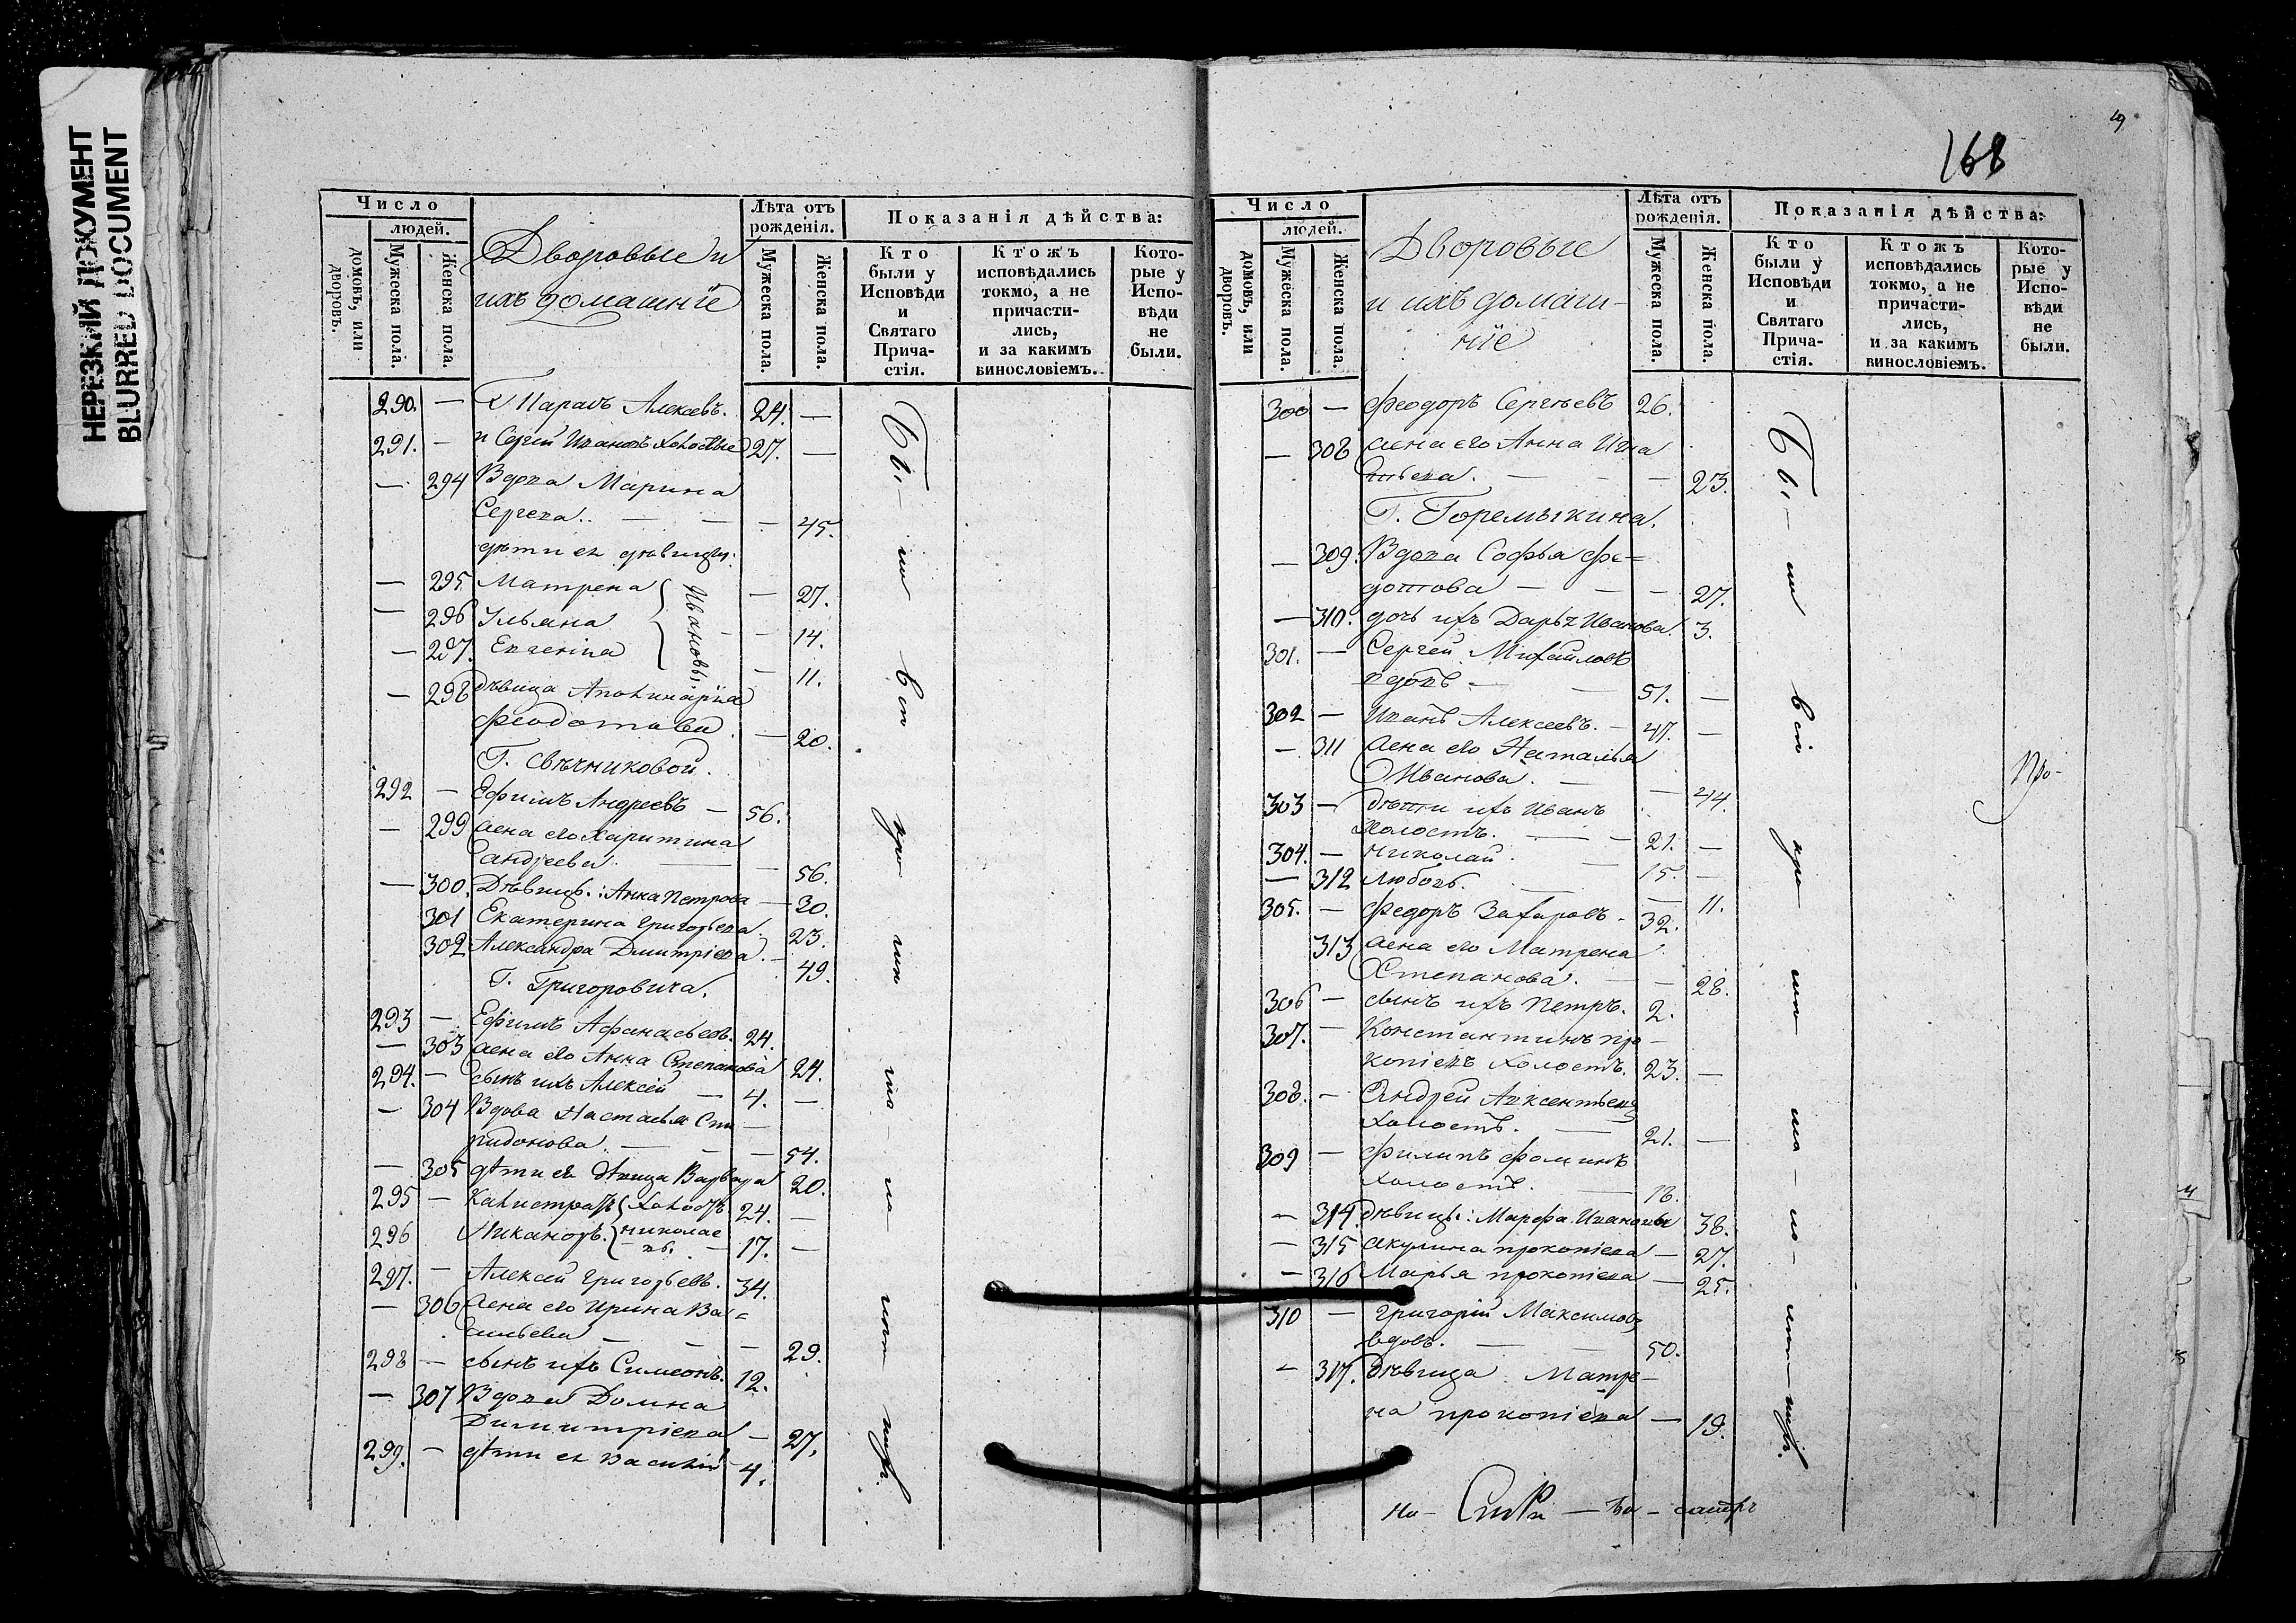 НЕРЕЗКИЙ ДОКУМЕНТ
BLURRED DOCUMENT
Число
людей.
домовъ, или дворовъ.
Мужеска пола.
Женска пола.
Дворовые и
ихъ домашнiе
Лѣта отъ рожденiя.
Мужеска пола.
Женска пола.
Показанiя дѣйства:
Кто были у Исповѣди и Святаго Причастiя.
Ктожъ исповѣдались токмо, а не причастились, и за какимъ винословiемъ.
Которые у Исповѣди не были.
290. — Алексѣевъ. 24. —
291. — и Сергiй Ивановъ холостые 27. —
— 294 Вдова Марина
Сергева. — — — 45.
дѣти ея дѣвицы:
— 295 Матрена Ивановы — 27.
— 296 Ульяна — 14.
— 297. Евгенiа — 11.
— 298 дѣвица Аполинарiа
Феодотова — 20.
Г. Свѣчниковой.
292 — Ефимъ Андреевъ — 56.
— 299 жена его Харитина
андреева — 56.
— 300. Дѣвицы: Анна Петрова — 30.
301 Екатерина григорьева. 23.
302 Александра Димитрiева. — 49.
Г. Григоровича.
293 — Ефимъ Афанасьевъ. 24.
— 303 жена его Анна Степанова 24.
294. — сынъ ихъ Алексей — 4. —
— 304 Вдова Настасья Спи —
ридонова — — 54.
— 305 дѣти ея дѣвица Варвара 20.
295 — Калистратъ холостъ 24. —
296 Никаноръ. николае
въ. — 17. —
297. — Алексѣй григорьевъ. 34.
— 306 жена его Ирина Ва=
сильева — — 29.
298 — сынъ ихъ Симеонъ. 12.
— 307 Вдова Домна
Димитрiева — 27.
299. — дѣти ея Василiй 4.
Бы — ли вси
168
Число
людей.
домовъ, или дворовъ.
Мужеска пола.
Женска пола.
Дворовые
и ихъ домаш-
нiе
Лѣта отъ рожденiя.
Мужеска пола.
Женска пола.
Показанiя дѣйства:
Кто были у Исповѣди и Святаго Причастiя.
Ктожъ исповѣдались токмо, а не причастились, и за какимъ винословiемъ.
Которые у Исповѣди не были.
300 — Феодоръ Сергѣевъ 26.
— 308 жена его Анна Игна
тьева. — — — 23.
Г. Горемыкина.
— 309. Вдова Софья Фе=
дотова — — — 27.
— 310. дочь ихъ Дарья Иванова. 3.
301. — Сергей Михайловъ
вдовъ — — 51. —
302 — Иванъ Алексеевъ. — 47. —
— 311 жена его Наталья
Иванова. — — 44.
303 — дѣти ихъ Иванъ
холостъ. — — 21. —
304. — николай. — 15. —
— 312 Любовь. — — 11.
305. — Федоръ Захаровъ. 32.
313 жена его Матрена
Степанова. — — 28.
306 — сынъ ихъ Петръ. 2.
307. — Константинъ про-
копiевъ холостъ. 23. —
308. — Андрей Авксентьевъ
холостъ. — 21. —
309 — Филипъ Фоминъ
холостъ. — 18.
— 314. дѣвицы: Марфа Иванова 38.
— 315 акулина прокопiева — 27.
— 316 Марья прокопiева — 25.
310 — григорiй Максимовъ
вдовъ. — — 50.
— 317. дѣвица Матре-
на прокопiева — 19.
Бы — ли вси
Про-